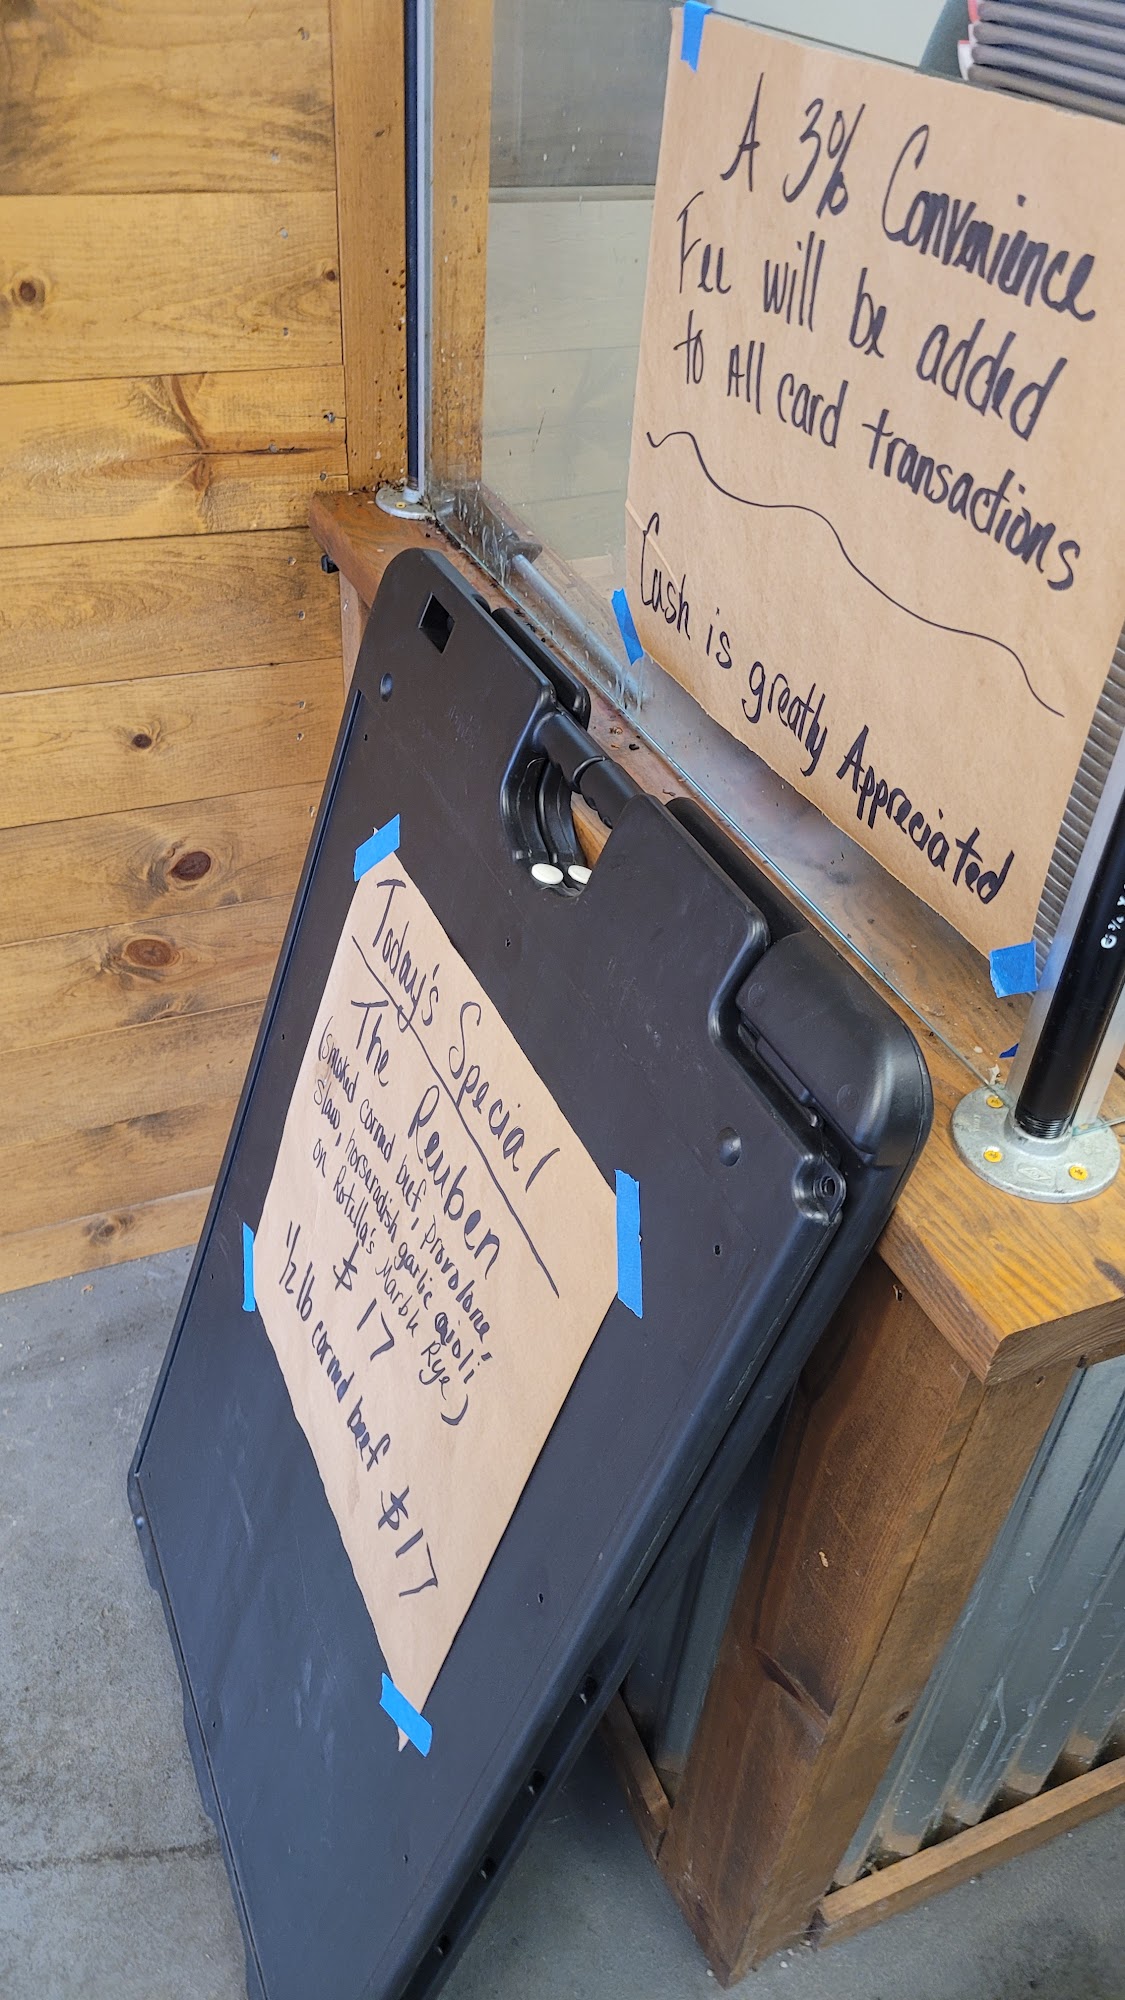 A 3% Convenience
Fee will be added
to All card transactions
Cash is greatly Appreciated
Today's Special
The Reuben
(smoked corned beef, provolone,
slaw, horseradish garlic aioli
on Rotilla's Marble Rye)
$17
1/2 lb corned beef $17